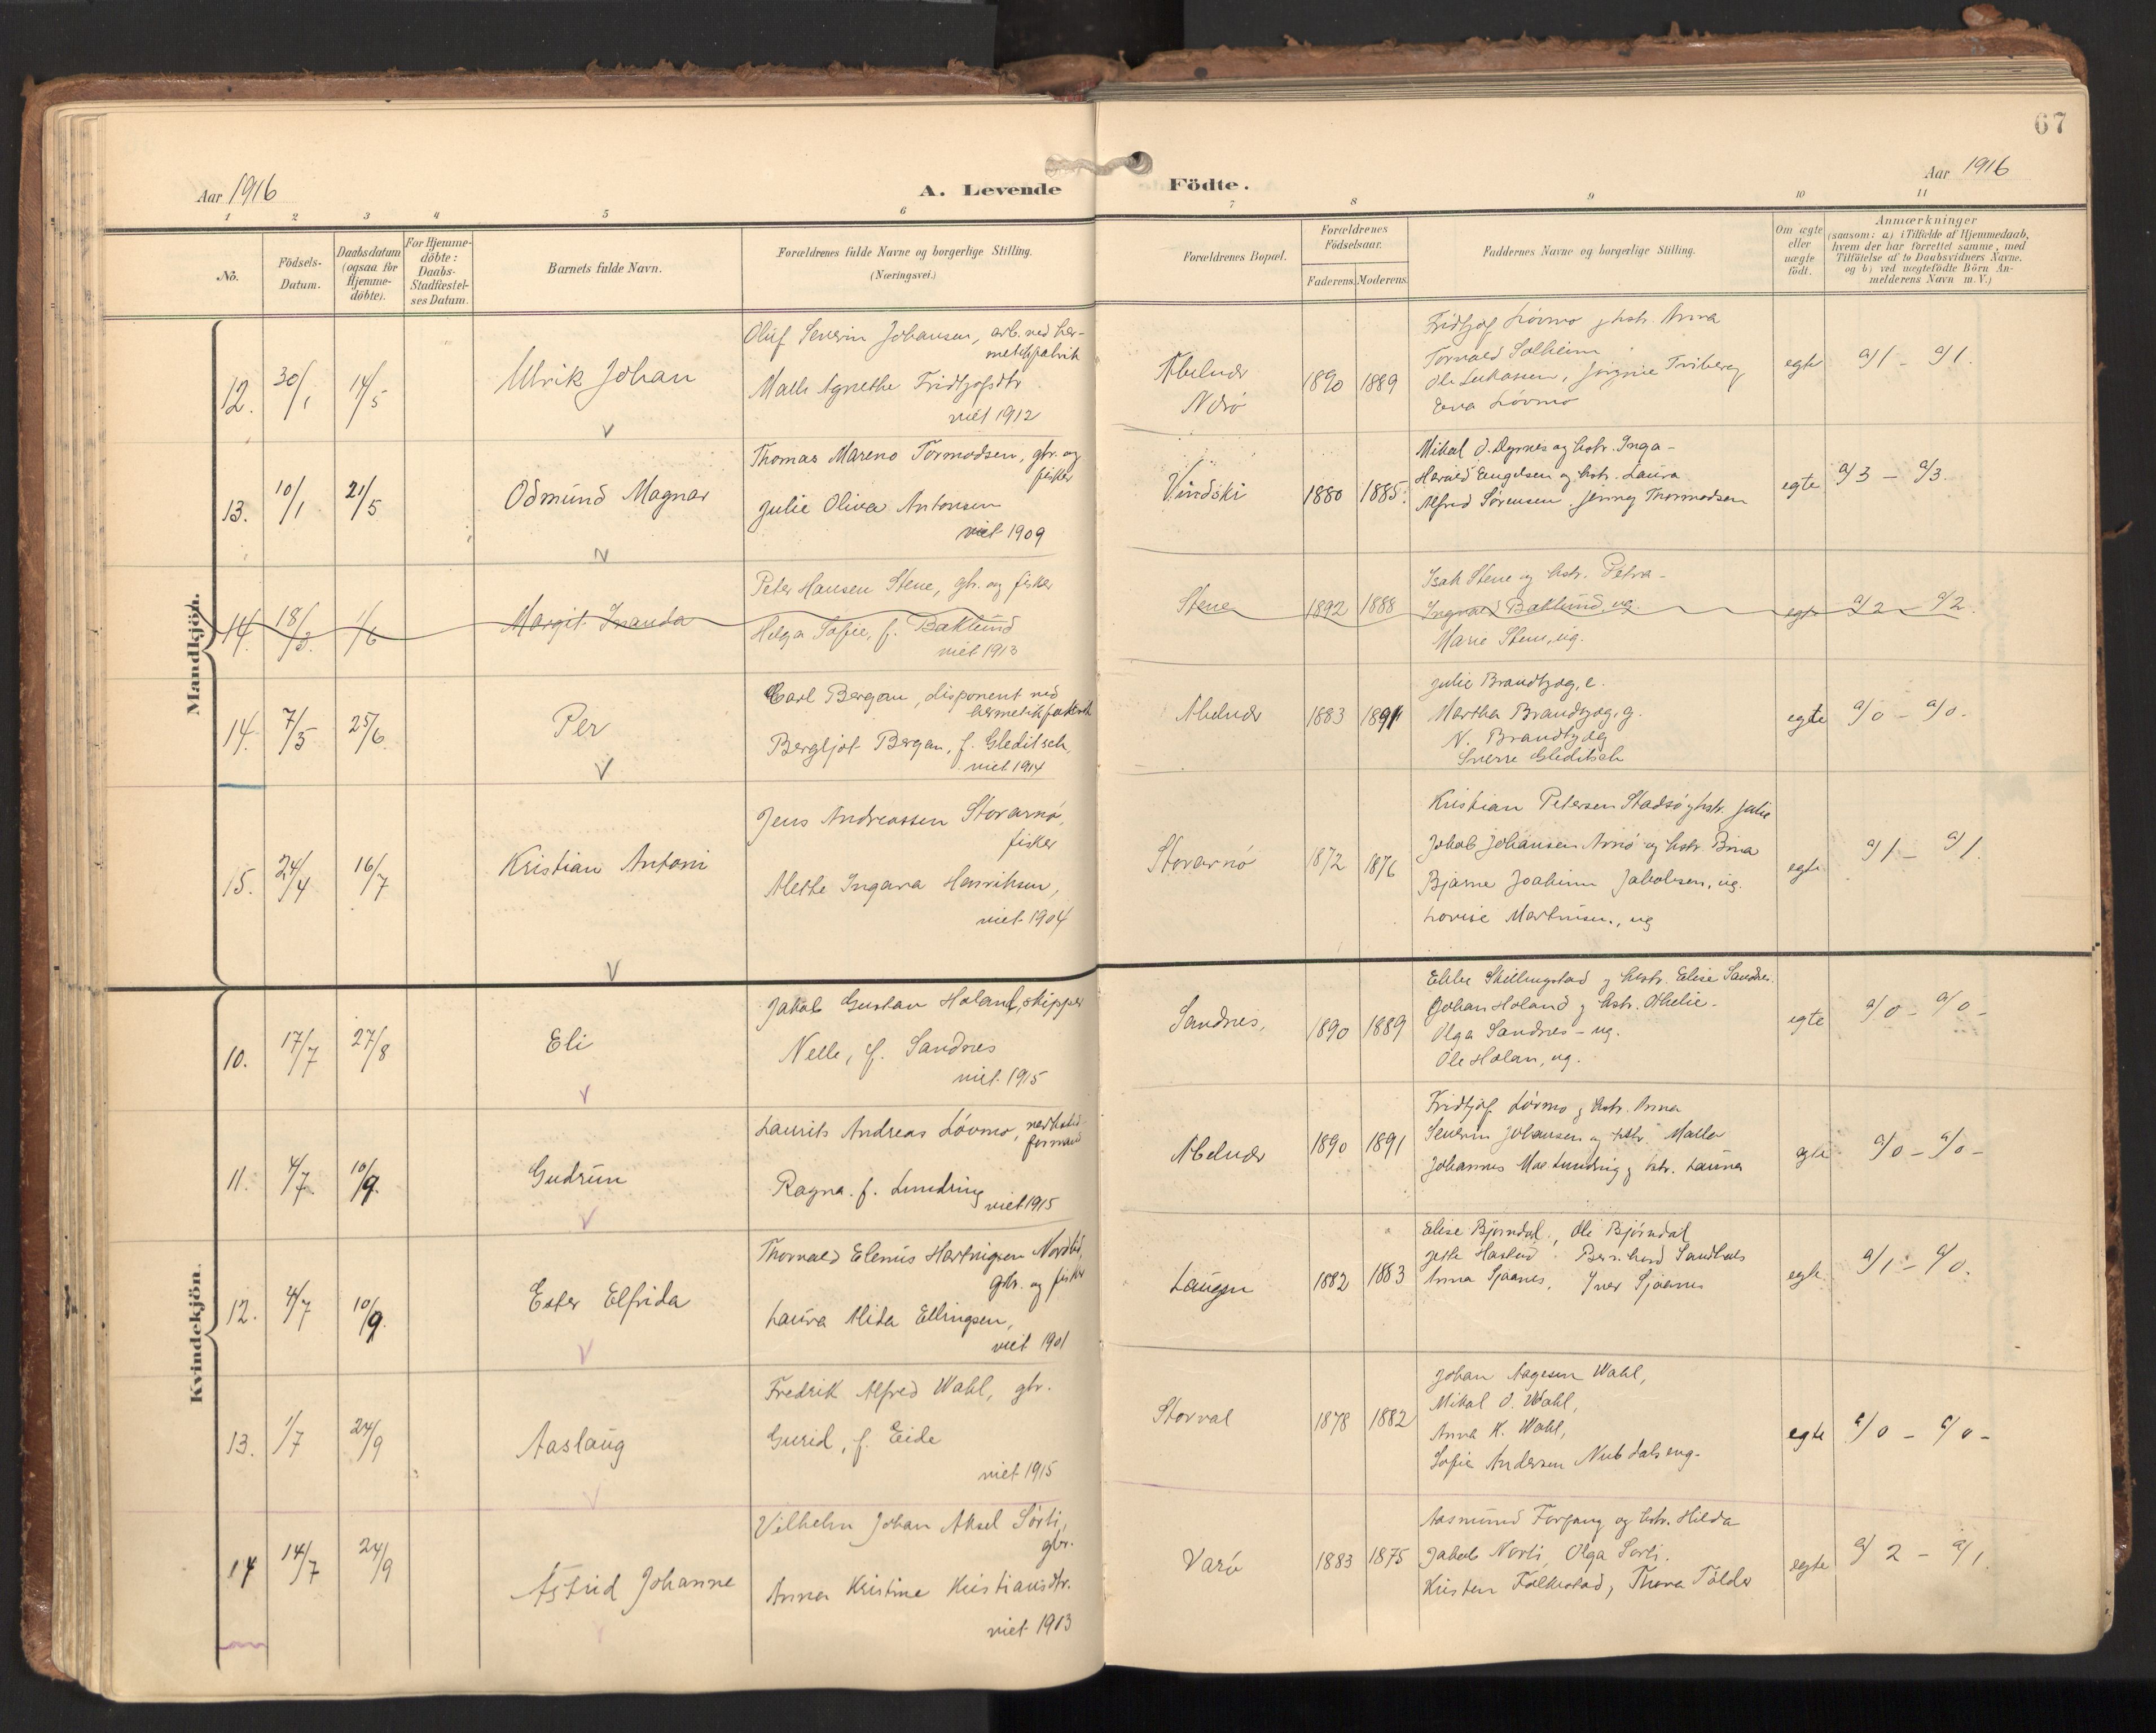 67
Aar 1916
A. Levende Födte.
Aar 1916
1 2 3 4 5 6 7 8 9 10 11
No.
Födsels-
Datum.
Daabsdatum
(ogsaa for
Hjemme-
döbte).
For Hjemme-
döbte:
Daabs-
Stadfæstel-
ses Datum.
Barnets fulde Navn.
Forældrenes fulde Navne og borgerlige Stilling.
(Næringsvei.)
Forældrenes Bopæl.
Forældrenes
Födselsaar.
Faderens. Moderens.
Faddernes Navne og borgerlige Stilling.
Om ægte
eller
uægte
födt.
Anmærkninger
(saasom: a) i Tilfælde af Hjemmedaab,
hvem der har forrettet samme, med
Tilföielse af to Daabsvidners Navne.
og b) ved uægtefödte Börn An-
melderens Navn m.V.)
Mandkjön.
12. 30/1 14/5
Ulrik Johan
Oluf Severin Johansen, arb. ved her-
metikfabrik
Malli Agnethe Fridtjofsdtr
viet 1912
Abelvær
Nærø
1890 1889
Fridtjof Løvmo og hstr. Anna
Torvald Solheim
Ole Lukassen, Jørgine Friberg
Eva Løvmo
egte
a/1 - a/1.
13. 10/1 21/5
Odmund Magnar
Thomas Mareno Tormodsen, gbr. og
fisker
Julie Oliva Antonsen
viet 1909
Vindski
1880 1885.
Mikal O. Dyrnes og hstr. Inga -
Harald Engelsen og hstr. Laura
Alfred Sørensen. Jenny Thormodsen
egte
a/3 - a/3.
14. 18/3 1/6
Margit Iranda
Peter Hansen Stene, gbr. og fisker
Helga Sofie, f. Baklund
viet 1913
Stene
1892 1888
Isak Stene og hstr. Petra -
Ingvard Baklund, ug.
Marie Stene, ug.
egte
a/2 - a/2.
14. 7/5 25/6.
Per
Carl Bergan, disponent ved
hermetikfabrik
Bergljot Bergan, f. Gleditsch,
viet 1914
Abelvær
1883 1891
Julie Brandtzæg, e.
Martha Brandtzæg, g.
N. Brandtzæg
Sverre Gleditsch
egte
a/0 - a/0.
15. 24/4 16/7
Kristian Antoni
Jens Andreassen Storarnø,
fisker
Mette Ingara Henriksen,
viet 1904
Storarnø
1872 1876
Kristian Petersen Stadsø og hstr. Julie
Jakob Johansen Arnø og hstr. Brua
Bjarne Joakim Jakobsen, ug.
Lovise Martinsen, ug
egte
a/1 - a/1.
Kvindekjön.
10. 17/7 27/8
Eli
Jakob Gustav Holand, skipper
Nelle, f. Sandnes
viet 1915
Sandnes,
1890 1889
Ebbe Skillingstad og hustr. Elise Sandnes.
Johan Holand og hstr. Othelie -
Olga Sandnes - ug.
Ole Holan, ug.
egte
a/0 - a/0 -
11. 4/7 10/9.
Gudrun
Laurits Andreas Løvmo,
formand
Ragna. f. Lundring
viet 1915
Abelvær
1890 1891
Fridtjof Løvmo og hstr. Anna
Severin Johansen og hstr. Malla
Johannes Moe Lundring og hstr. Laura
egte
a/0 - a/0 -
12. 4/7 10/9.
Ester Elfrida
Thorvald Elenius Hartvigsen Nordlid,
gbr. og fisker
Laura Alida Ellingsen,
viet 1901
Laugen
1882 1883
Elise Bjørndal, Ole Bjørndal
Jette Haslad. Bernhard Sandbæs
Anna Sjaanes, Iver Sjaanes
egte
a/1 - a/0.
13. 1/7 24/9
Aaslaug
Fredrik Alfred Wahl, gbr.
Gurid, f. Eide
viet 1915
Storval
1878 1882
Johan Aagesen Wahl,
Mikal J. Wahl,
Anna K. Wahl,
Sofie Andersen Nubdalseng.
egte
a/0 - a/0 -
14 14/7 24/9
Astrid Johanne
Vilhelm Johan Aksel Sørli,
gbr.
Anna Kristine Kristiansdtr.
viet 1913
Varø
1883 1875
Aasmund Forfang og hstr. Hilda
Jakob Norli, Olga Sørli.
Kristen Falkestad, Thora Tolder
egte
a/2 - a/1.